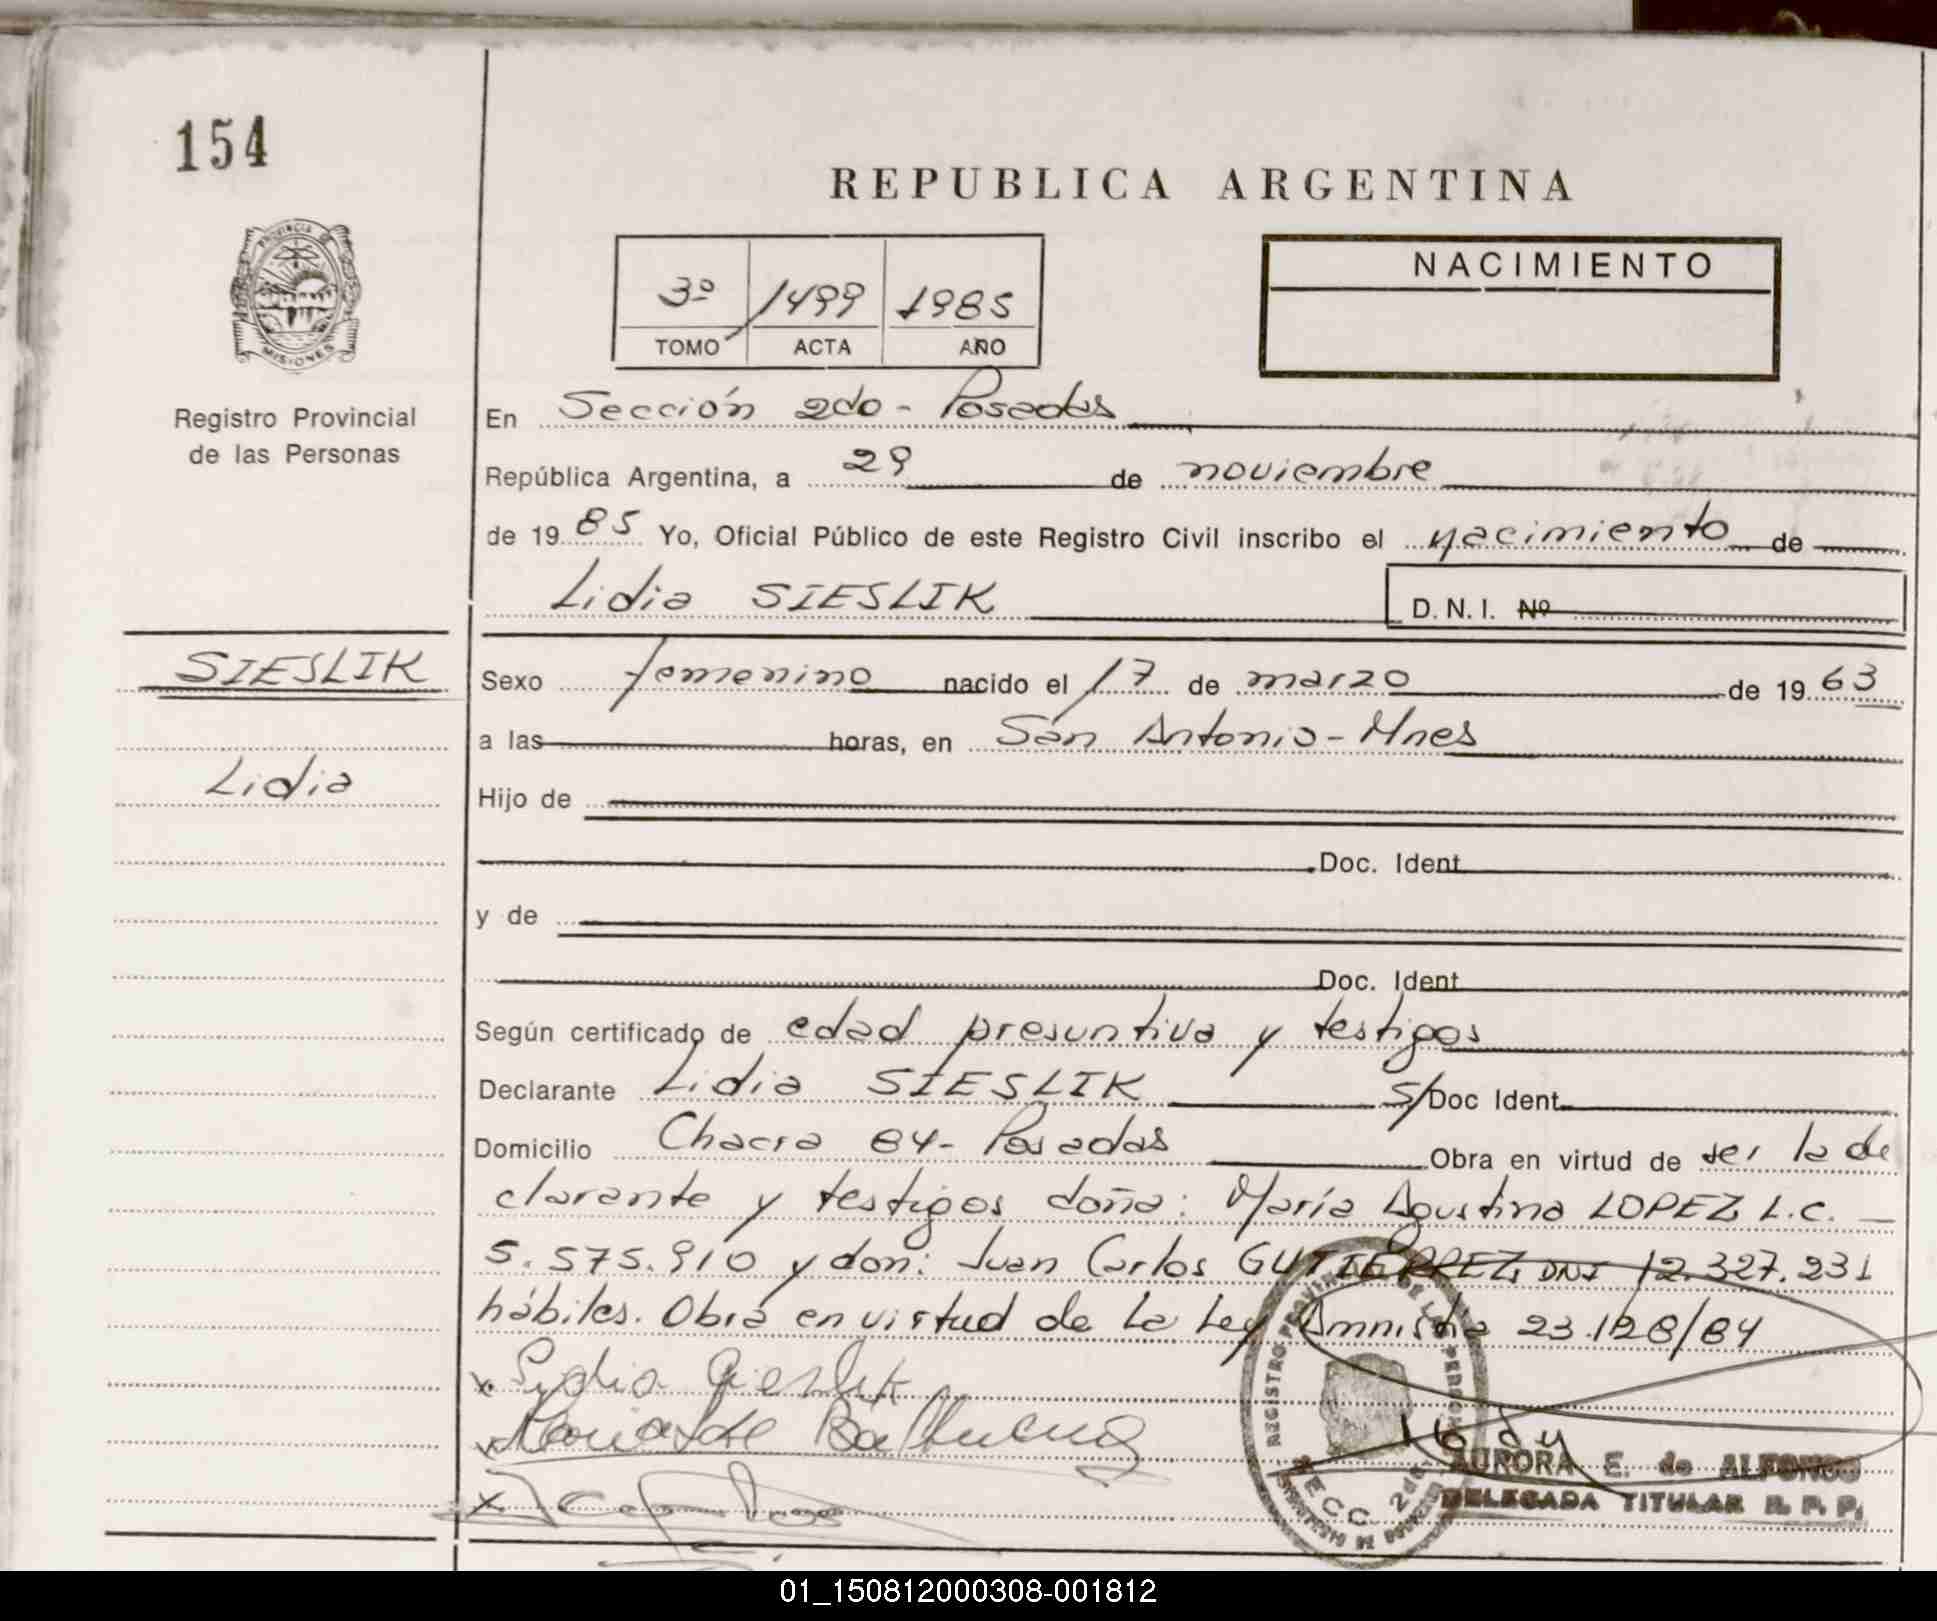 154
REPUBLICA ARGENTINA
PROVINCIA DE
MISIONES
Registro Provincial
de las Personas
3º 1499 1985
TOMO ACTA AÑO
NACIMIENTO
En Sección 2do - Posadas
República Argentina, a 29 de noviembre
de 19 85 Yo, Oficial Público de este Registro Civil inscribo el nacimiento de
Lidia SIESLIK D.N.I. Nº
SIESLIK
Sexo femenino nacido el 17 de marzo de 19 63
a las horas, en San Antonio - Mnes
Lidia
Hijo de
Doc. Ident
y de
Doc. Ident
Según certificado de edad presuntiva y testigos
Declarante Lidia SIESLIK S/Doc Ident.
Domicilio Chacra 84 - Posadas Obra en virtud de ser la de
clarante y testigos doña: María Agustina LOPEZ L.C. —
5.575.910 y don: Juan Carlos GUTIERREZ, DNI 12.327.231
hábiles. Obra en virtud de la Ley Amnistia 23.128/84
x Lydia Sieslik
x
x
AURORA E. de ALFONSO
DELEGADA TITULAR R. P. P.
01_150812000308-001812